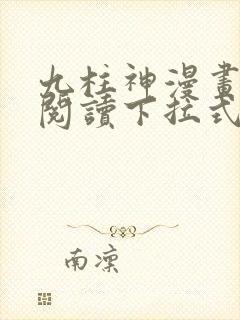 九柱神漫畫
閱讀下拉式
南凜